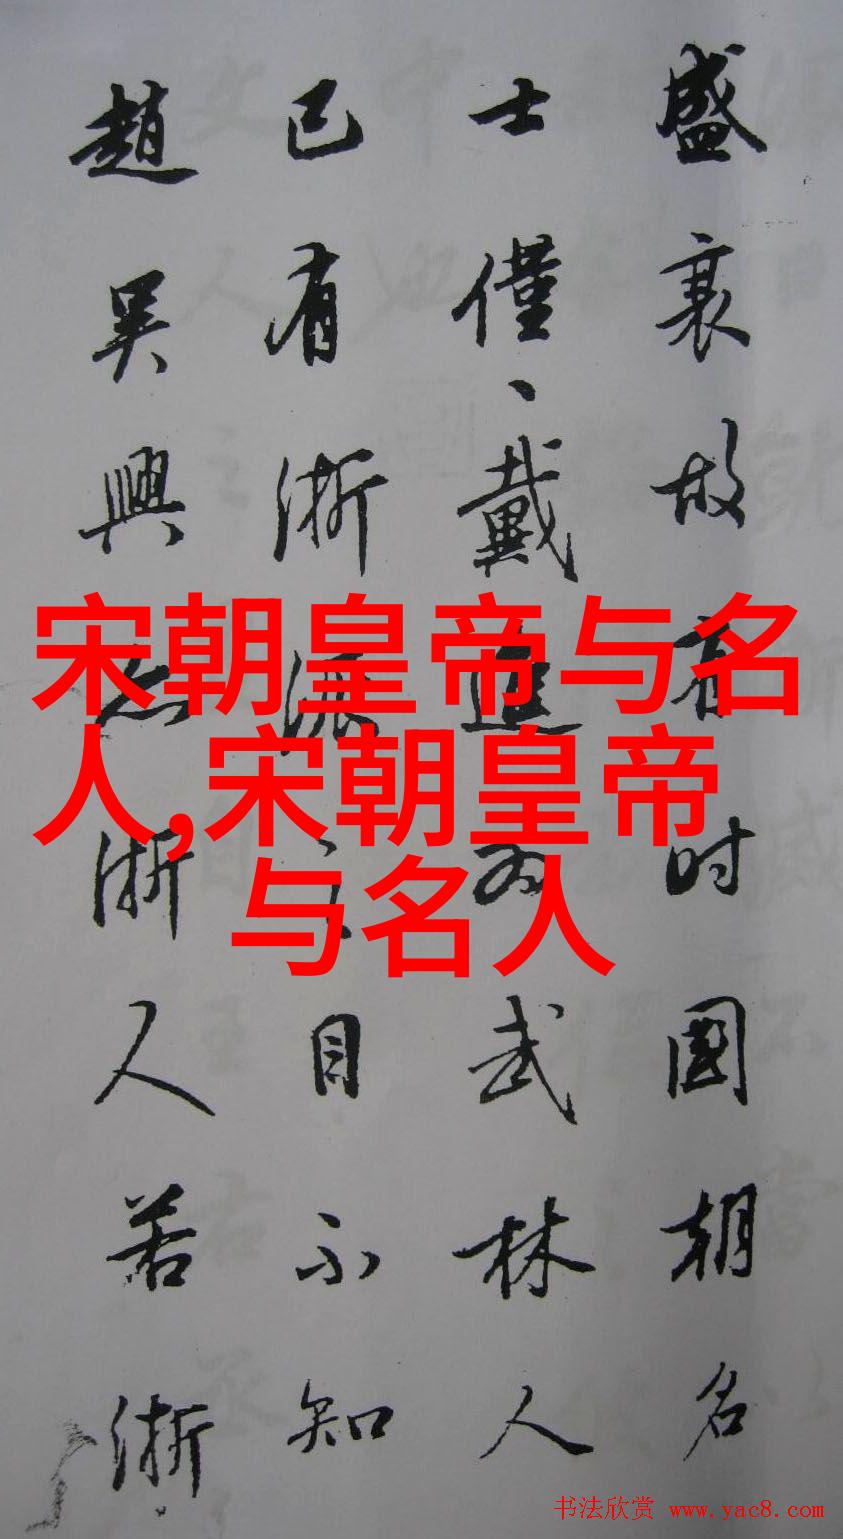 盛衰故有时國朝名
士僅、戴進为武林人
已有浙派之目不知
趙吳興亦浙人若浙
宋朝皇帝与名
人,宋朝皇帝
与名人
书法欣赏 www.yac8.com